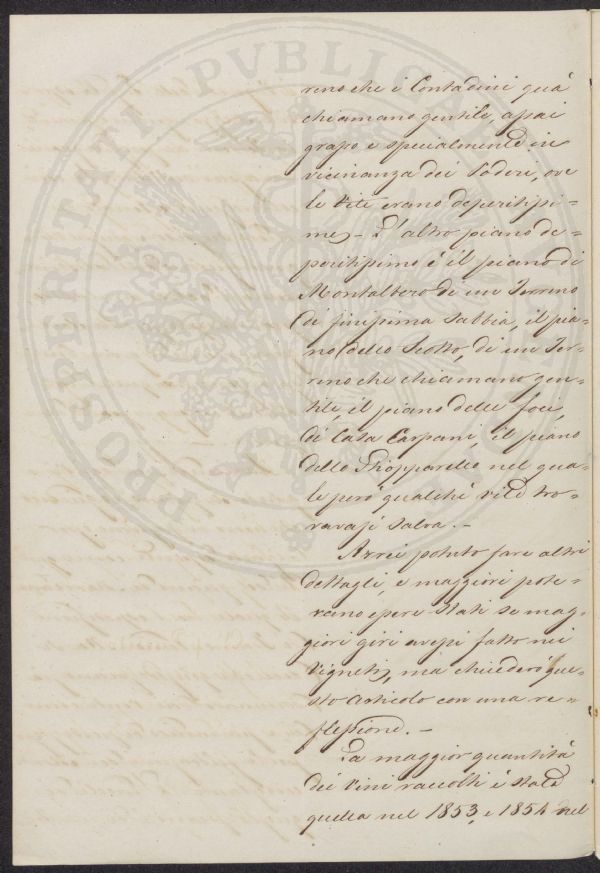 PROSPERITATI PVBLICAE
reno che i Contadini quà
chiamano gentile, assai
grasso e specialmente in
vicinanza dei Poderi, ove
le Vite erano deperitissi=
me_ L'altro piano de=
peritissimo è il piano di
Montalbero di un Terreno
di finissima Sabbia, il pia=
no dello Scotto, di un Ter=
reno che chiamano gen=
tile, il piano delle foci,
di Casa Carpani, il piano
dello Ghiopparello nel qua=
le però qualche vite tro=
vavasi Salva._
Avrei potuto fare altri
dettagli, e maggiori pote=
vano essere Stati se mag=
giori giri avessi fatto nei
Vigneti, ma chiuderò que=
sto articolo con una re=
flessione._
La maggior quantità
dei Vini raccolti è Stata
quella nel 1853, e 1854 nel